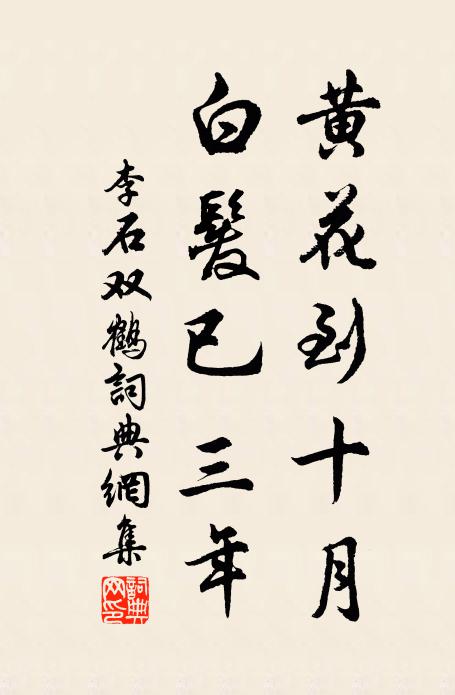 黄花到十月
白髮已三年
李石双鶴詞典網集
詞典网印